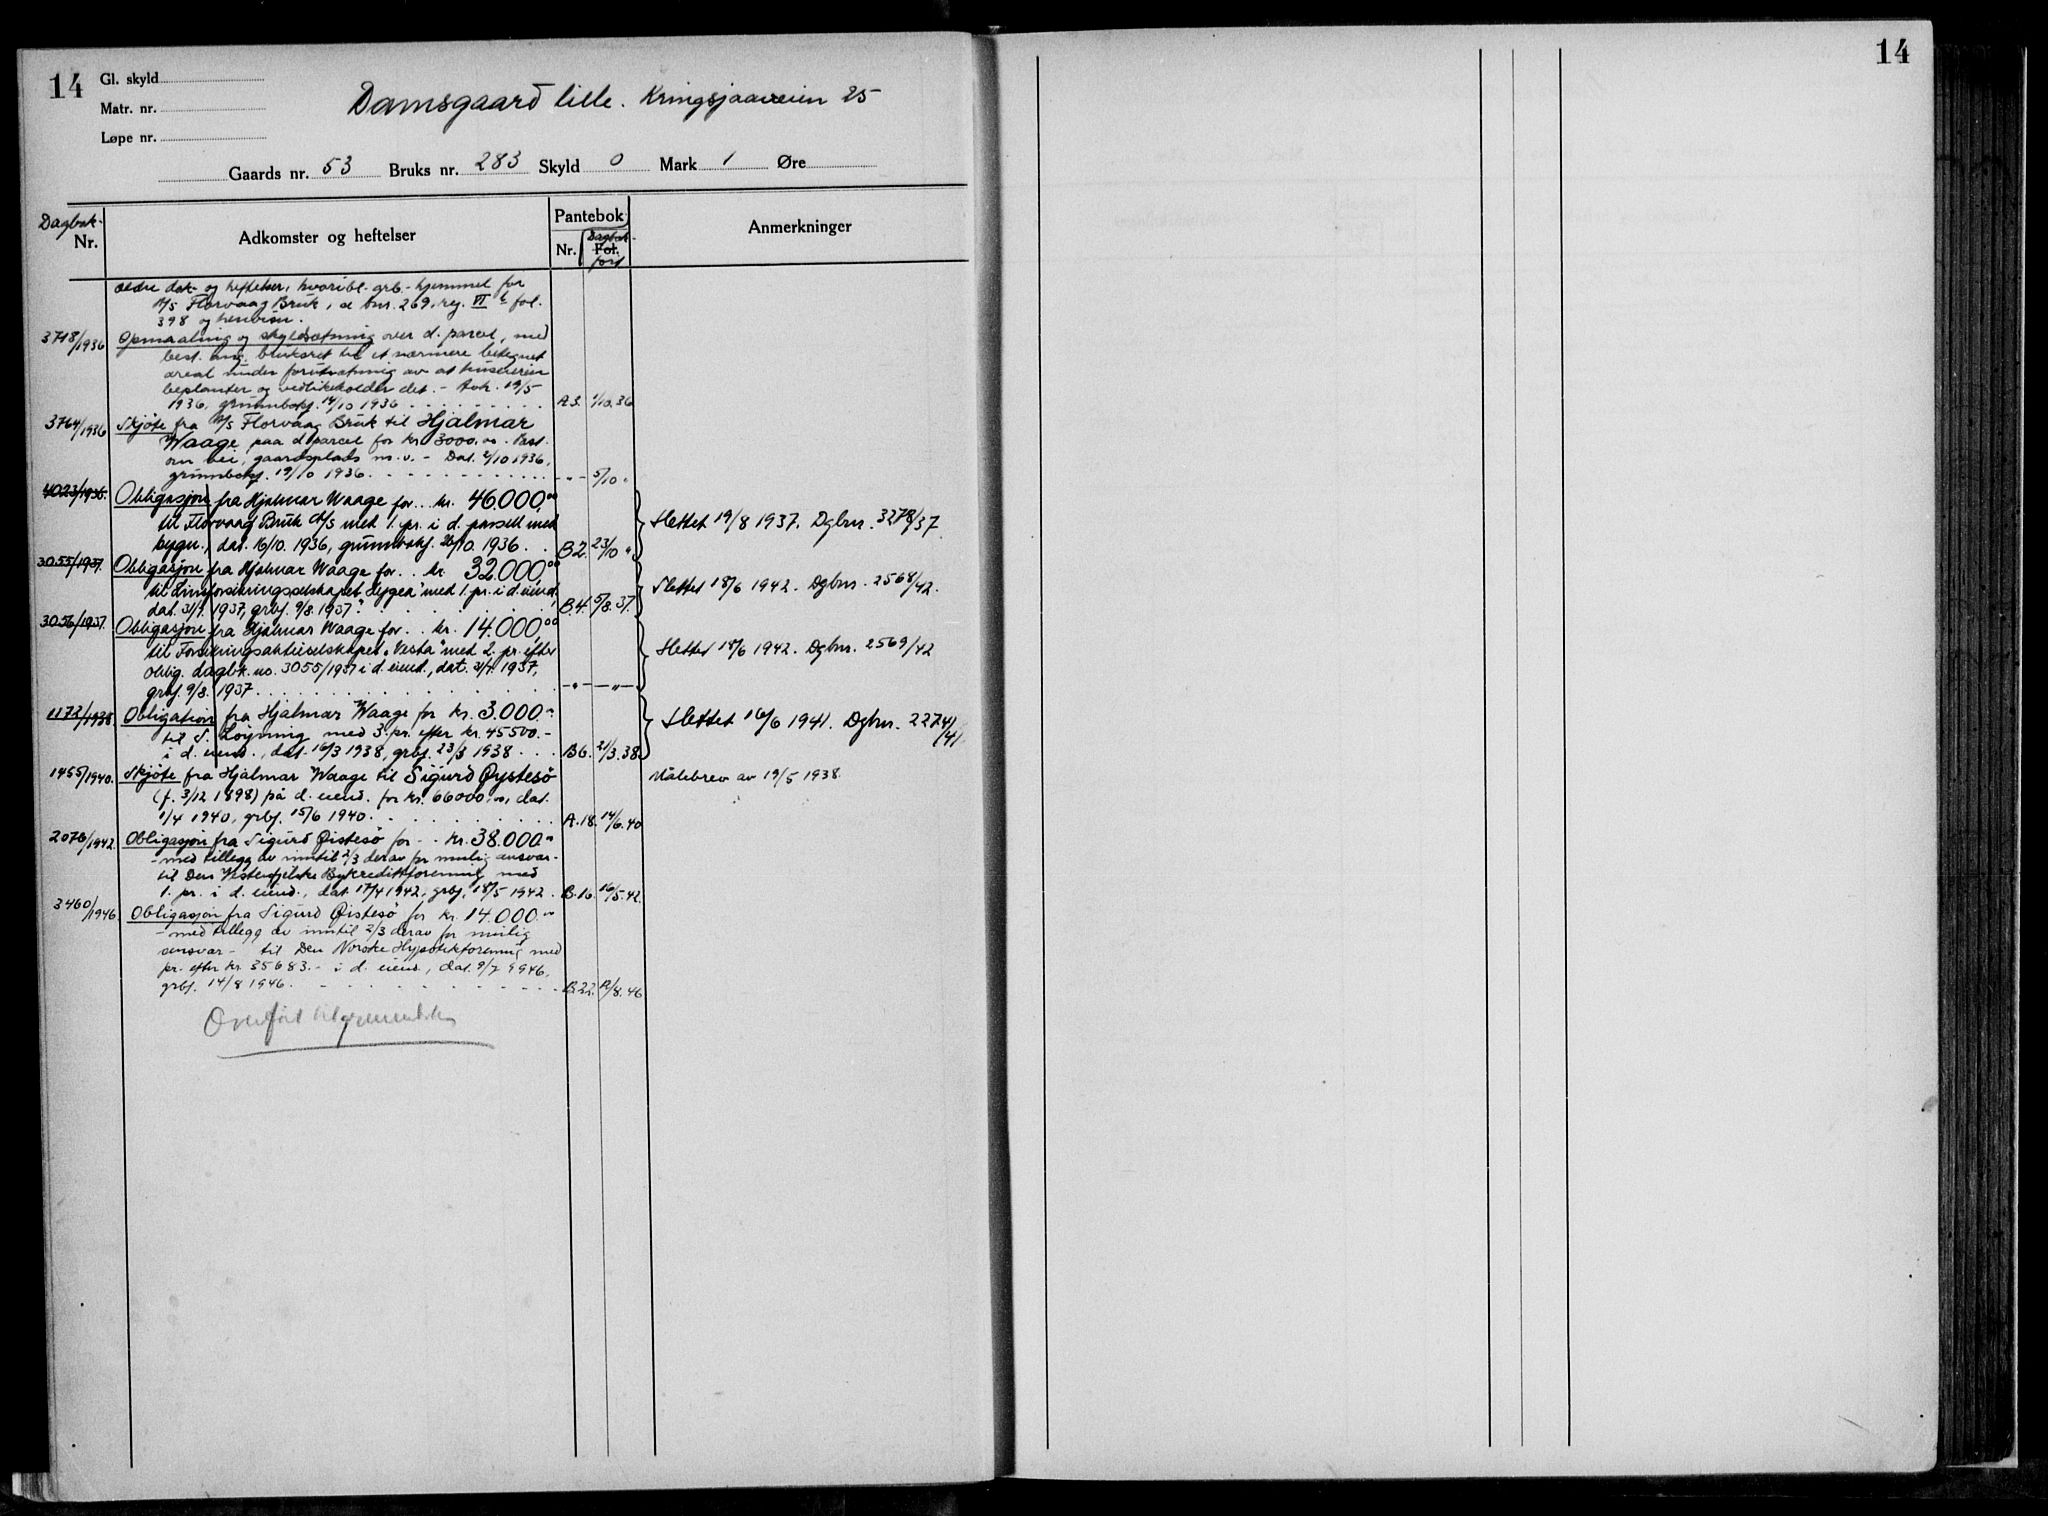 14
Gl. skyld
Matr. nr.
Løpe nr.
Damsgaard lille. Kringsjaaveien 25
Gaards nr. 53 Bruks nr. 283 Skyld 0 Mark 1 Øre
Dagbok-
Nr.
Adkomster og heftelser
Pantebok
Nr.
Dagbok-
Fol.
ført
Anmerkninger
ældre dok og heftelser, hvoribl. grb.-hjemmel for
A/s Florvaag Bruk, se bnr. 269, reg. VI b fol.
398 og henvisn.
3718/1936 Opmaaling og skyldsætning over d. parcel, med
best. ang. bruksret til et nærmere betegnet
areal under forutsætning av at huseieren
beplanter og vedlikeholder det. - Avh. 19/5
1936, grunnboksf. 14/10 1936 A3. 1/10.36
3764/1936 Skjøte fra A/s Florvaag Bruk til Hjalmar
Waage paa d. parcel for kr. 3000,00. Best.
om vei, gaardsplads m.v. - Dat. 2/10 1936,
grunnboksf. 19/10 1936. -"- 5/10 "
4023/1936. Obligasjon fra Hjalmar Waage for.. kr. 46.000,00
til Florvaag Bruk A/S med 1. pr. i d. parsell med
bygn., dat. 16/10. 1936, grunnboksf. 26/10. 1936. B2. 23/10 "
Slettet 19/8 1937. Dgbnr. 3278/37.
3055/1937. Obligasjon fra Hjalmar Waage for.. kr. 32.000,00
til Livsforsikringsselskapet "Hygea" med 1. pr. i d. eiend.,
dat. 31/7. 1937, grbf. 9/8. 1937. B.4. 5/8.37.
Slettet 18/6 1942. Dgbnr. 2568/42.
3056/1937. Obligasjon fra Hjalmar Waage for.. kr. 14.000,00
til Forsikringsaktieselskapet "Vesta" med 2. pr. efter
oblig. dagbk. no. 3055/1937 i d. eiend., dat. 31/7. 1937,
grbf. 9/8. 1937 -"- -"-
Slettet 18/6 1942. Dgbnr. 2569/42
1172/1938. Obligation fra Hjalmar Waage for kr. 3.000.-
til S. Løyning med 3. pr. efter kr. 45500.-
i d. eiend., dat. 16/3 1938, grbf. 23/3 1938 B6. 21/3.38.
Slettet 16/6 1941. Dgbnr. 2274/41.
1455/1940. Skjøte fra Hjalmar Waage til Sigurd Øystesø
(f. 3/12 1898) på d. eiend. for kr. 66000,00, dat.
1/4 1940, grbf. 15/6 1940. A.18. 14/6.40
Målebrev av 19/5 1938.
2076/1942. Obligasjon fra Sigurd Øistesø for - - kr. 38.000.-
- med tillegg av inntil 2/3 derav for mulig ansvar -
til Den Vestenfjelske Bykredittforening med
1. pr. i d. eiend., dat. 17/4 1942, grbf. 18/5 1942. B.16. 16/5.42.
3460/1946. Obligasjon fra Sigurd Øistesø for kr. 14.000.-
- med tillegg av inntil 2/3 derav for mulig
ansvar - til Den Norske Hypotekforening med
pr. efter kr. 35683.- i d. eiend., dat. 9/7 1946,
grbf. 14/8 1946. B.22. 12/8.46
Overført til grunnboken
14